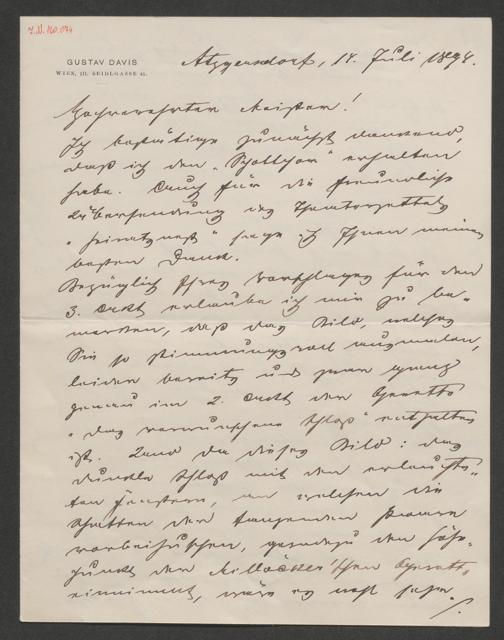 I.N. 160.074
GUSTAV DAVIS
WIEN, III. SEIDLGASSE
Atzgersdorf, 14. Juli 1894.
Hochverehrter Meister!
Ich bestätige zunächst dankend,
daß ich den „ erhalten
habe. Auch für die freundliche
Übersendung des Theaterzettels
„ sage ich Ihnen meinen
besten Dank.
Bezüglich Ihres Vorschlages für den
3. Act erlaube ich mir zu be-
merken, daß das Bild, welches
Sie so stimmungsvoll ausmalen,
leider bereits und zwar ganz
genau im 2. Act der Operette
„das verwunschene Schloß“ enthalten
ist. Und da dieses Bild: das
dunkle Schloß mit den erleuchte-
ten Fenstern, an welchen die
Schatten der tanzenden Paare
vorbeihuschen, geradezu den Höhe-
punkt der Millöcker'schen Operette
einnimmt, wäre es